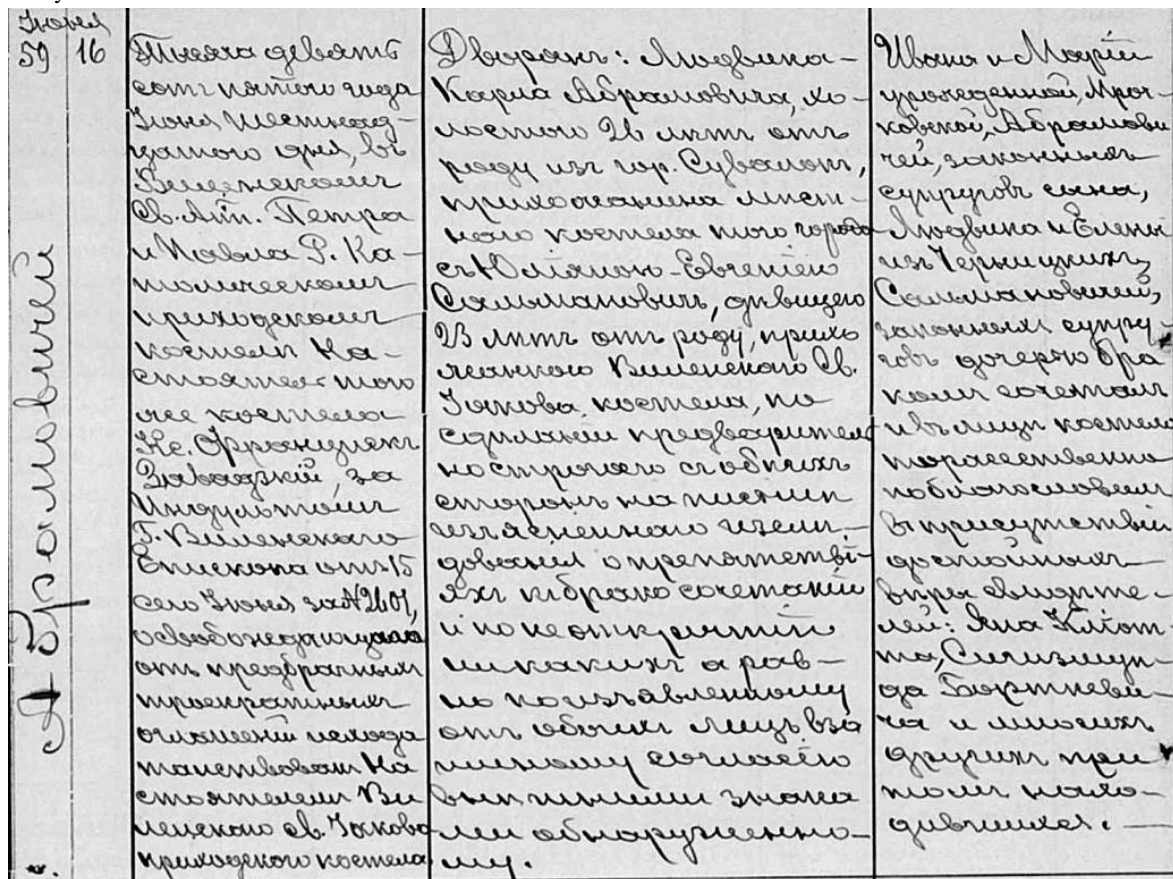 Іюня
59 16
Абрамовичей
Тысяча девять
сотъ пятого года
Іюня шестнад-
цатого дня, въ
Виленскомъ
Св. Ап. Петра
и Павла Р. Ка-
толическомъ
приходскомъ
костелѣ На-
стоятель того
же костела
Кс. Францискъ
Завадзкій, за
Индультомъ
Г. Виленскаго
Епископа отъ 15
сего Іюня за № 2601,
освобождающаго
отъ предбрачныхъ
троекратныхъ
оглашеній
На
стоятелемъ Ви
ленскаго св. Іакова
приходского костела
Дворянъ: Людвика-
Карла Абрамовича, хо-
лостого 26 лѣтъ отъ
роду изъ гор. Сувалокъ,
прихожанина мѣст-
наго костела того города
съ Юліаною-Евгеніею
Сальмановичъ, дѣвицею
23 лѣтъ отъ роду, прихо
жанкою Виленскаго Св.
Іакова костела, по
сдѣланіи предваритель
но строгаго съ обѣихъ
сторонъ на письмѣ
изъясненнаго изслѣ-
дованія о препятстві-
яхъ къ брако сочетанію
и по не открытіи
никакихъ а рав-
но по изъявленному
отъ обоихъ лицъ вза
имному согласію
внѣшними знака
ми обнаруженно-
му.
Ивана и Маріи
урожденной Мроч-
ковской, Абрамови
чей, законныхъ
супруговъ сына,
Людвика и Елены
изъ Черницкихъ
Сальмановичей,
законныхъ супру
говъ дочерью бра
комъ сочеталъ
и въ лицѣ костела
торжественно
поблагословилъ
въ присутствіи
достойныхъ
вѣры свидѣте-
лей: Яна Клют-
та, Сигизмун-
да Борткеви-
ча и многихъ
другихъ при
томъ нахо-
дившихся.